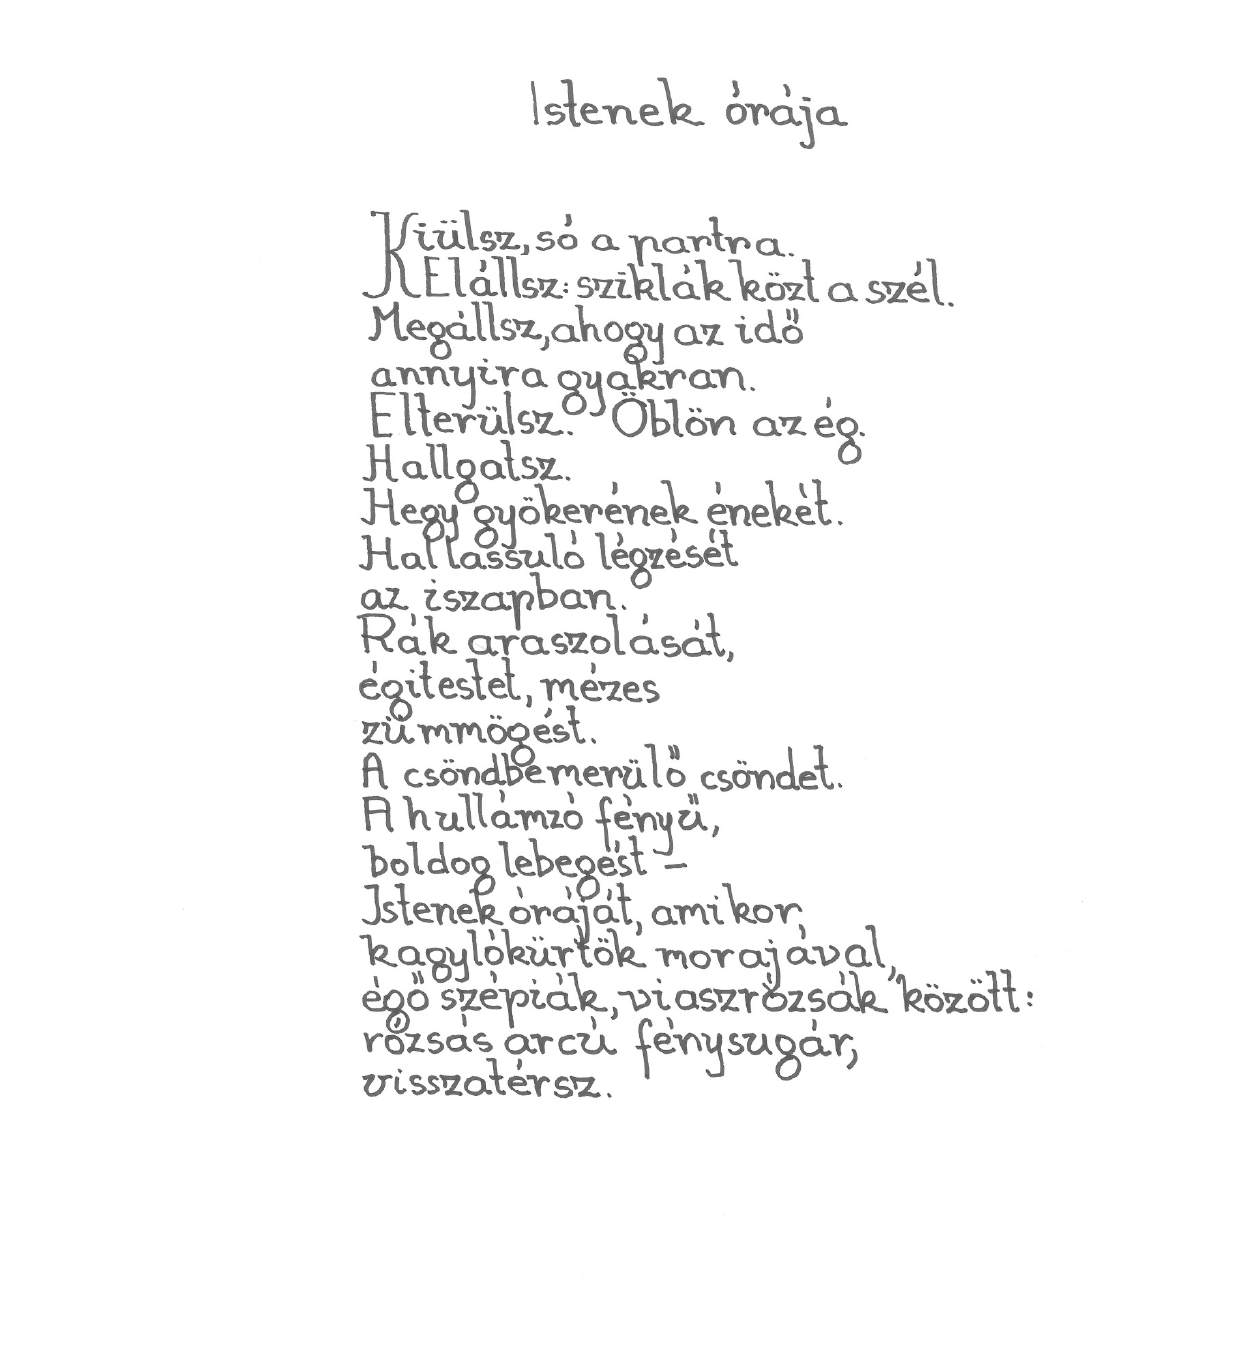 Istenek órája
Kiülsz, só a partra.
Elállsz: sziklák közt a szél.
Megállsz, ahogy az idő
annyira gyakran.
Elterülsz. Öblön az ég.
Hallgatsz.
Hegy gyökerének énekét.
Hal lassuló légzését
az iszapban.
Rák araszolását,
égitestet, mézes
zümmögést.
A csöndbemerülő csöndet.
A hullámzó fényű,
boldog lebegést –
Istenek óráját, amikor,
kagylókürtök morajával,
égő szépiák, viaszrózsák között:
rózsás arcú fénysugár,
visszatérsz.